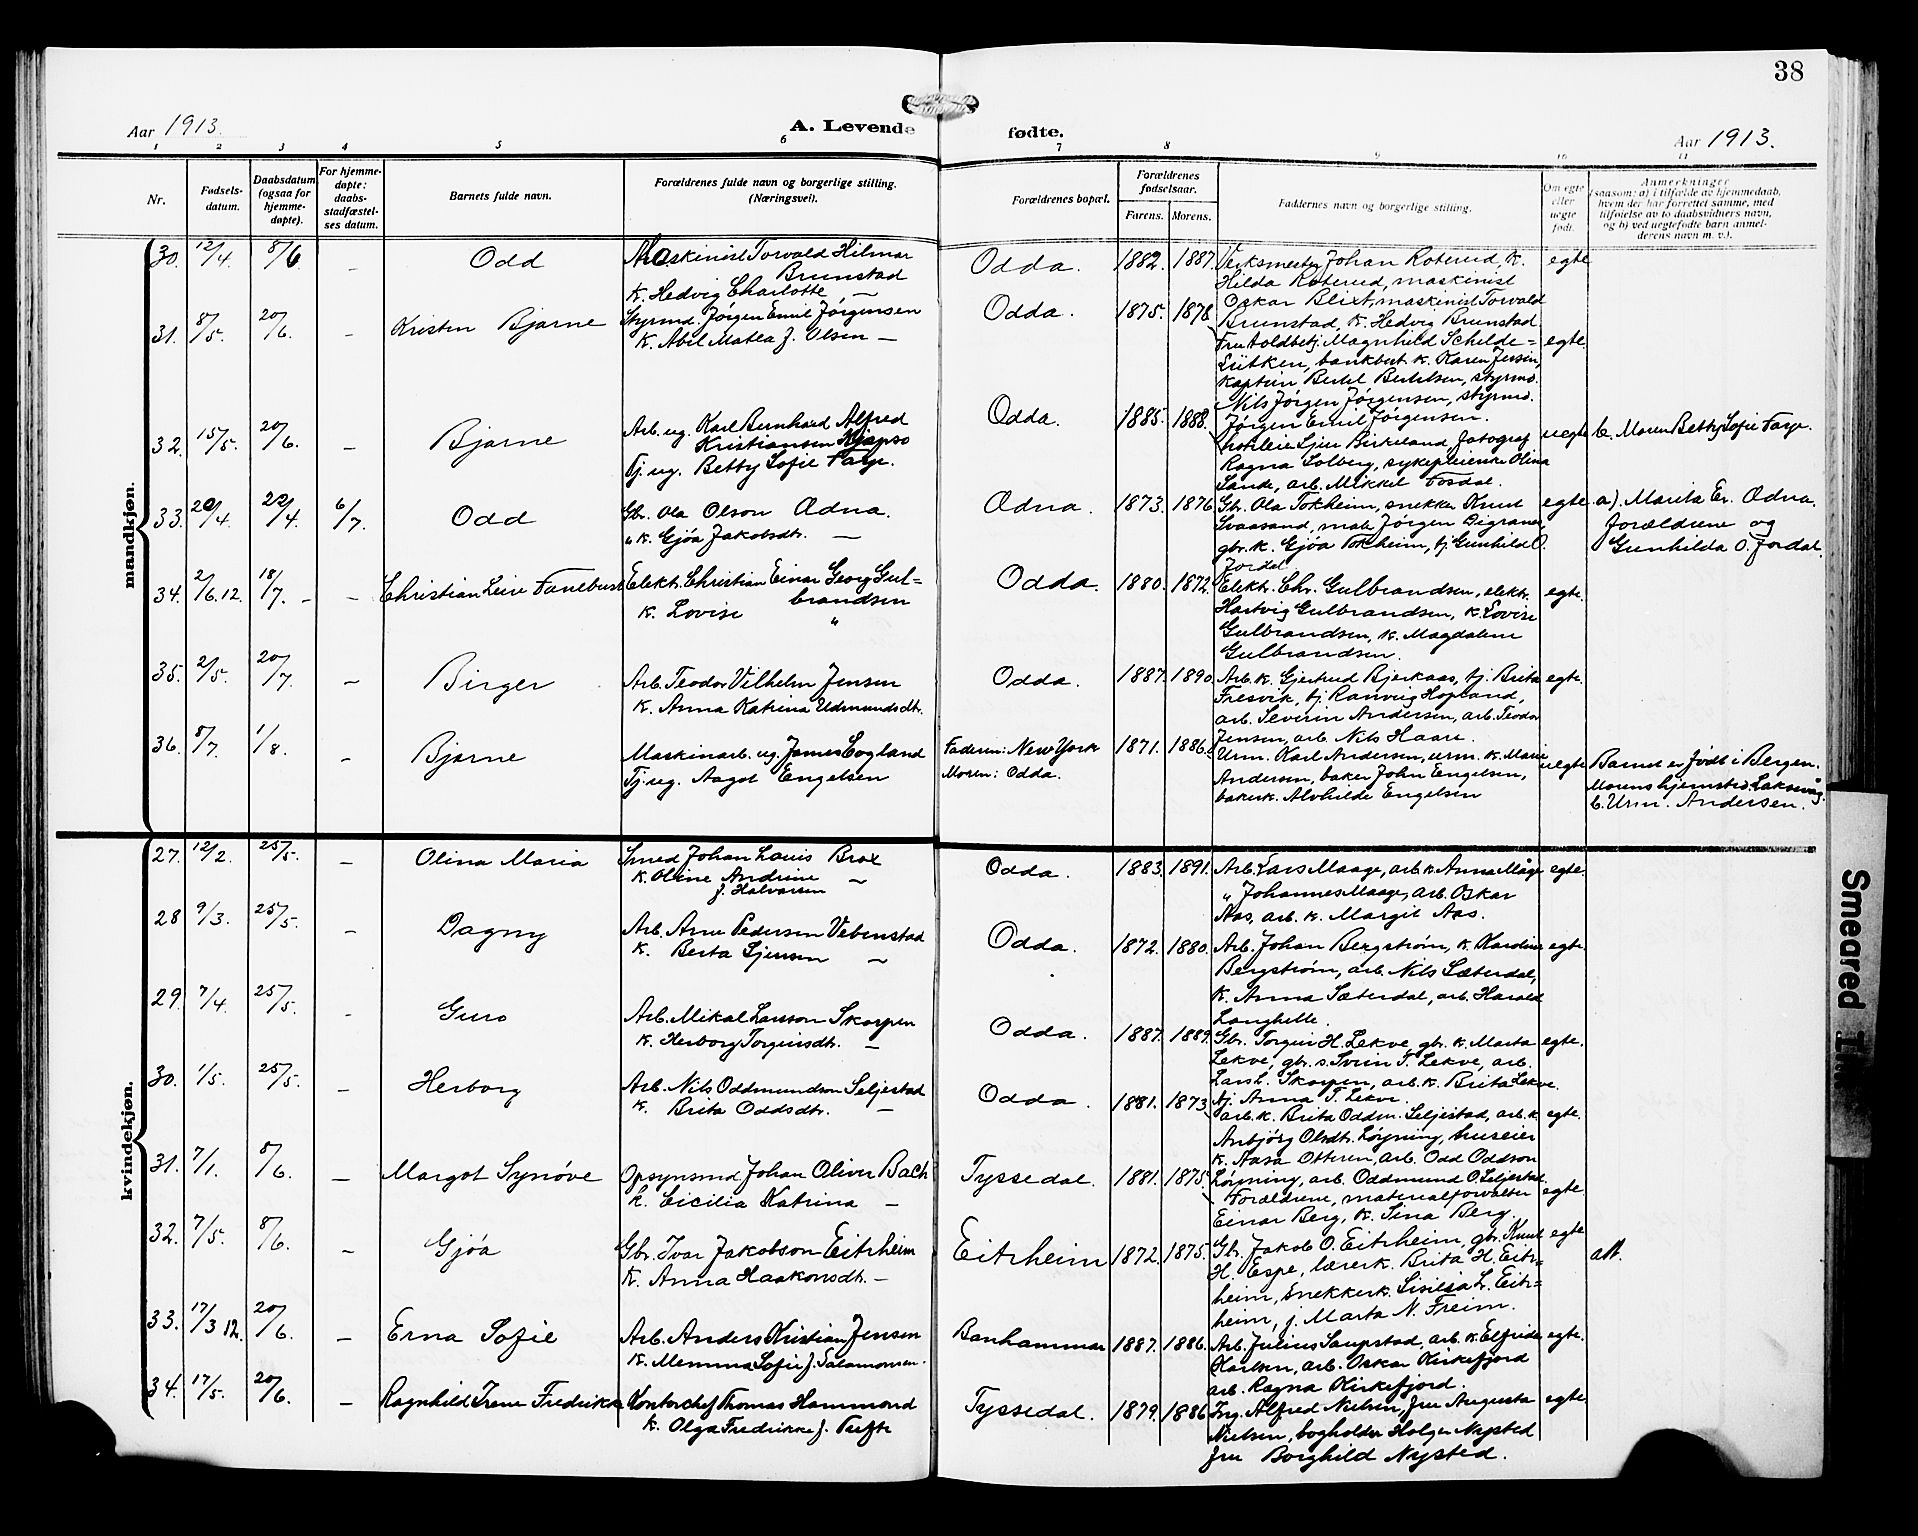 38
Aar 1913.
A. Levende fødte.
Aar 1913.
1 2 3 4 5 6 7 8 9 10 11
Nr.
Fødsels-
datum.
Daabsdatum
(ogsaa for
hjemme-
døpte).
For hjemme-
døpte:
daabs-
stadfæstel-
ses datum.
Barnets fulde navn.
Forældrenes fulde navn og borgerlige stilling.
(Næringsvei).
Forældrenes bopæl.
Forældrenes
fødselsaar.
Farens. Morens.
Faddernes navn og borgerlige stilling.
Om egte
eller
uegte
født.
Anmerkninger
(saasom: a) i tilfælde av hjemmedaab,
hvem der har forrettet samme, med
tilføielse av to daabsvidners navn,
og b) ved uegtefødte barn anmel-
derens navn m. v.).
mandkjøn.
30. 12/4. 8/6 – Odd
Maskinist Torvald Hilmar
Brunstad
k. Hedvig Charlotte –
Odda. 1882. 1887.
Verksmester Johan Roterud, k.
Hilda Roterud, maskinist
Oskar Blixt, maskinist Torvald
Brunstad, k. Hedvig Brunstad
egte
31. 8/5. 20/6. – Kristen Bjarne
Styrmd. Jørgen Emil Jørgensen
k. Abel Matea f. Olsen –
Odda. 1875. 1878.
Fru toldbetj. Magnhild Schilde=
Lütken, bankbest. k. Karen Jensen,
kaptein Bertel Bertelsen, styrmd.
Nils Jørgen Jørgensen, styrmd.
Jørgen Emil Jørgensen.
egte.
32. 15/5. 20/6. – Bjarne
Arb. ug. Karl Bernhard Alfred
Kristiansen Kjøpso
Tj. ug. Betty Sofie Farge.
Odda. 1885. 1888.
Birkeland, fotograf
Ragna Solberg, sykepleierske Olina
Sande, arb. Mikkel Fosdal.
uegte
b. Moren Betty Sofie Farge.
33. 20/4. 22/4. 6/7. Odd
Gbr. Ola Olson Ædna.
" k. Gjøa Jakobsdtr. –
Ædna. 1873. 1876.
Gbr. Ola Tokheim, snekker Knut
Svaasand, maler Jørgen Digranes,
gbr. k. Gjøa Tokheim, tj. Gunhild O.
Jordal.
egte
a). Marita Er. Ædna.
Forældrene og
Gunhilda O. Jordal.
34. 2/6.12. 18/7. – – Christian Leire Fanebust
Elektr. Christian Einar Georg Gul-
brandsen
k. Lovise "
Odda. 1880. 1872.
Elektr. Chr. Gulbrandsen, elektr.
Hartvig Gulbrandsen, k. Lovise
Gulbrandsen, k. Magdalene
Gulbrandsen.
egte.
35. 2/5. 20/7. – Birger
Arb. Teodor Vilhelm Jensen
k. Anna Katrina Udmundsdtr.
Odda. 1887. 1890.
Arb. k. Gjertrud Bjerkaas, tj. Brita
Fresvik, tj. Ranveig Hopland,
arb. Severin Andersen, arb. Teodor
Jensen, arb. Nils Haare.
egte.
36. 8/7. 1/8. – Bjarne
Maskinarb. ug. James Cogland
Tj. ug. Aagot Engelsen
Faderen: New York
Moren: Odda.
1871. 1886.
Urm. Karl Andersen, urm. k. Marie
Andersen, baker John Engelsen,
bakerk. Alvhilde Engelsen
uegte
Barnet er født i Bergen.
Morens hjemsted Laksevåg.
b. Urm. Andersen.
kvindekjøn.
27. 12/2. 25/5. – Olina Maria
Smed Johan Louis Brox
k. Oline Andrine –
f. Halvorsen
Odda. 1883. 1891.
Arb. Lars Maage, arb. k. Anna Måge
" Johannes Maage, arb. Oskar
Aas, arb. k. Margit Aas.
egte.
28 9/3. 25/5. – Dagny
Arb. Arne Pedersen Vebenstad
k. Berta Sjursen –
Odda. 1872. 1880.
Arb. Johan Bergstrøm, k. Kardine
Bergstrøm, arb. Nils Sæterdal,
k. Anna Sæterdal, arb. Harald
Langhelle.
egte.
29. 7/4. 25/5. - Guro
Arb. Mikal Larsson Skarpen
k. Herborg Torgeirsdtr. –
Odda. 1887. 1889.
Gbr. Torgeir H. Lekve, gbr. k. Marta
Lekve, gbr. s. Svein T. Lekve, arb.
Lars L. Skarpen, arb. k. Brita Lekve.
tj. Anna T. Lekve.
egte.
30. 1/5. 25/5. – Herborg
Arb. Nils Oddmundson Seljestad
k. Brita Oddsdtr. –
Odda. 1881. 1873.
arb. k. Brita Oddm. Seljestad, arb. k.
Anbjørg Olsdtr. Løyning, huseier
k. Aasa Otteren, arb. Odd Oddson
Løyning, arb. Oddmund O. Seljestad.
egte.
31. 7/1. 8/6. – Margot Synøve
Opsynsmd Johan Oliver Bach
k. Cicilia Katrina –
Tyssedal. 1881. 1875.
Forældrene, materialforvalter
Einar Berg, k. Sina Berg.
egte.
32. 7/5. 8/6. – Gjøa
Gbr. Ivar Jakobson Eitrheim
k. Anna Haakonsdtr. –
Eitrheim 1872. 1875.
Gbr. Jakob O. Eitrheim, gbr. Knut
H. Espe, lærerk. Brita H. Eitr=
heim, snekkerk. Sisilja L. Eitr=
heim, j. Marta N. Freim.
egte
att.
33. 17/3 12. 20/6. – Erna Sofie
Arb. Anders Kristian Jensen
k. Memma Sofie f. Salamonsen.
Banhammar 1887. 1886.
Arb. Julius Saupstad, arb. k. Elfrida
Karlsen, arb. Oskar Kirkefjord
arb. Ragna Kirkefjord.
egte.
34. 17/5. 20/6. – Ragnhild Irene Fredrikke
Kontorchef Thomas Hammond
k. Olga Fredrikke f. Tufte
Tyssedal. 1879. 1886.
Ing. Alfred Nielsen, fru Augusta
Nielsen, bogholder Holger Nysted
fru Borghild Nysted.
egte.
Smeared